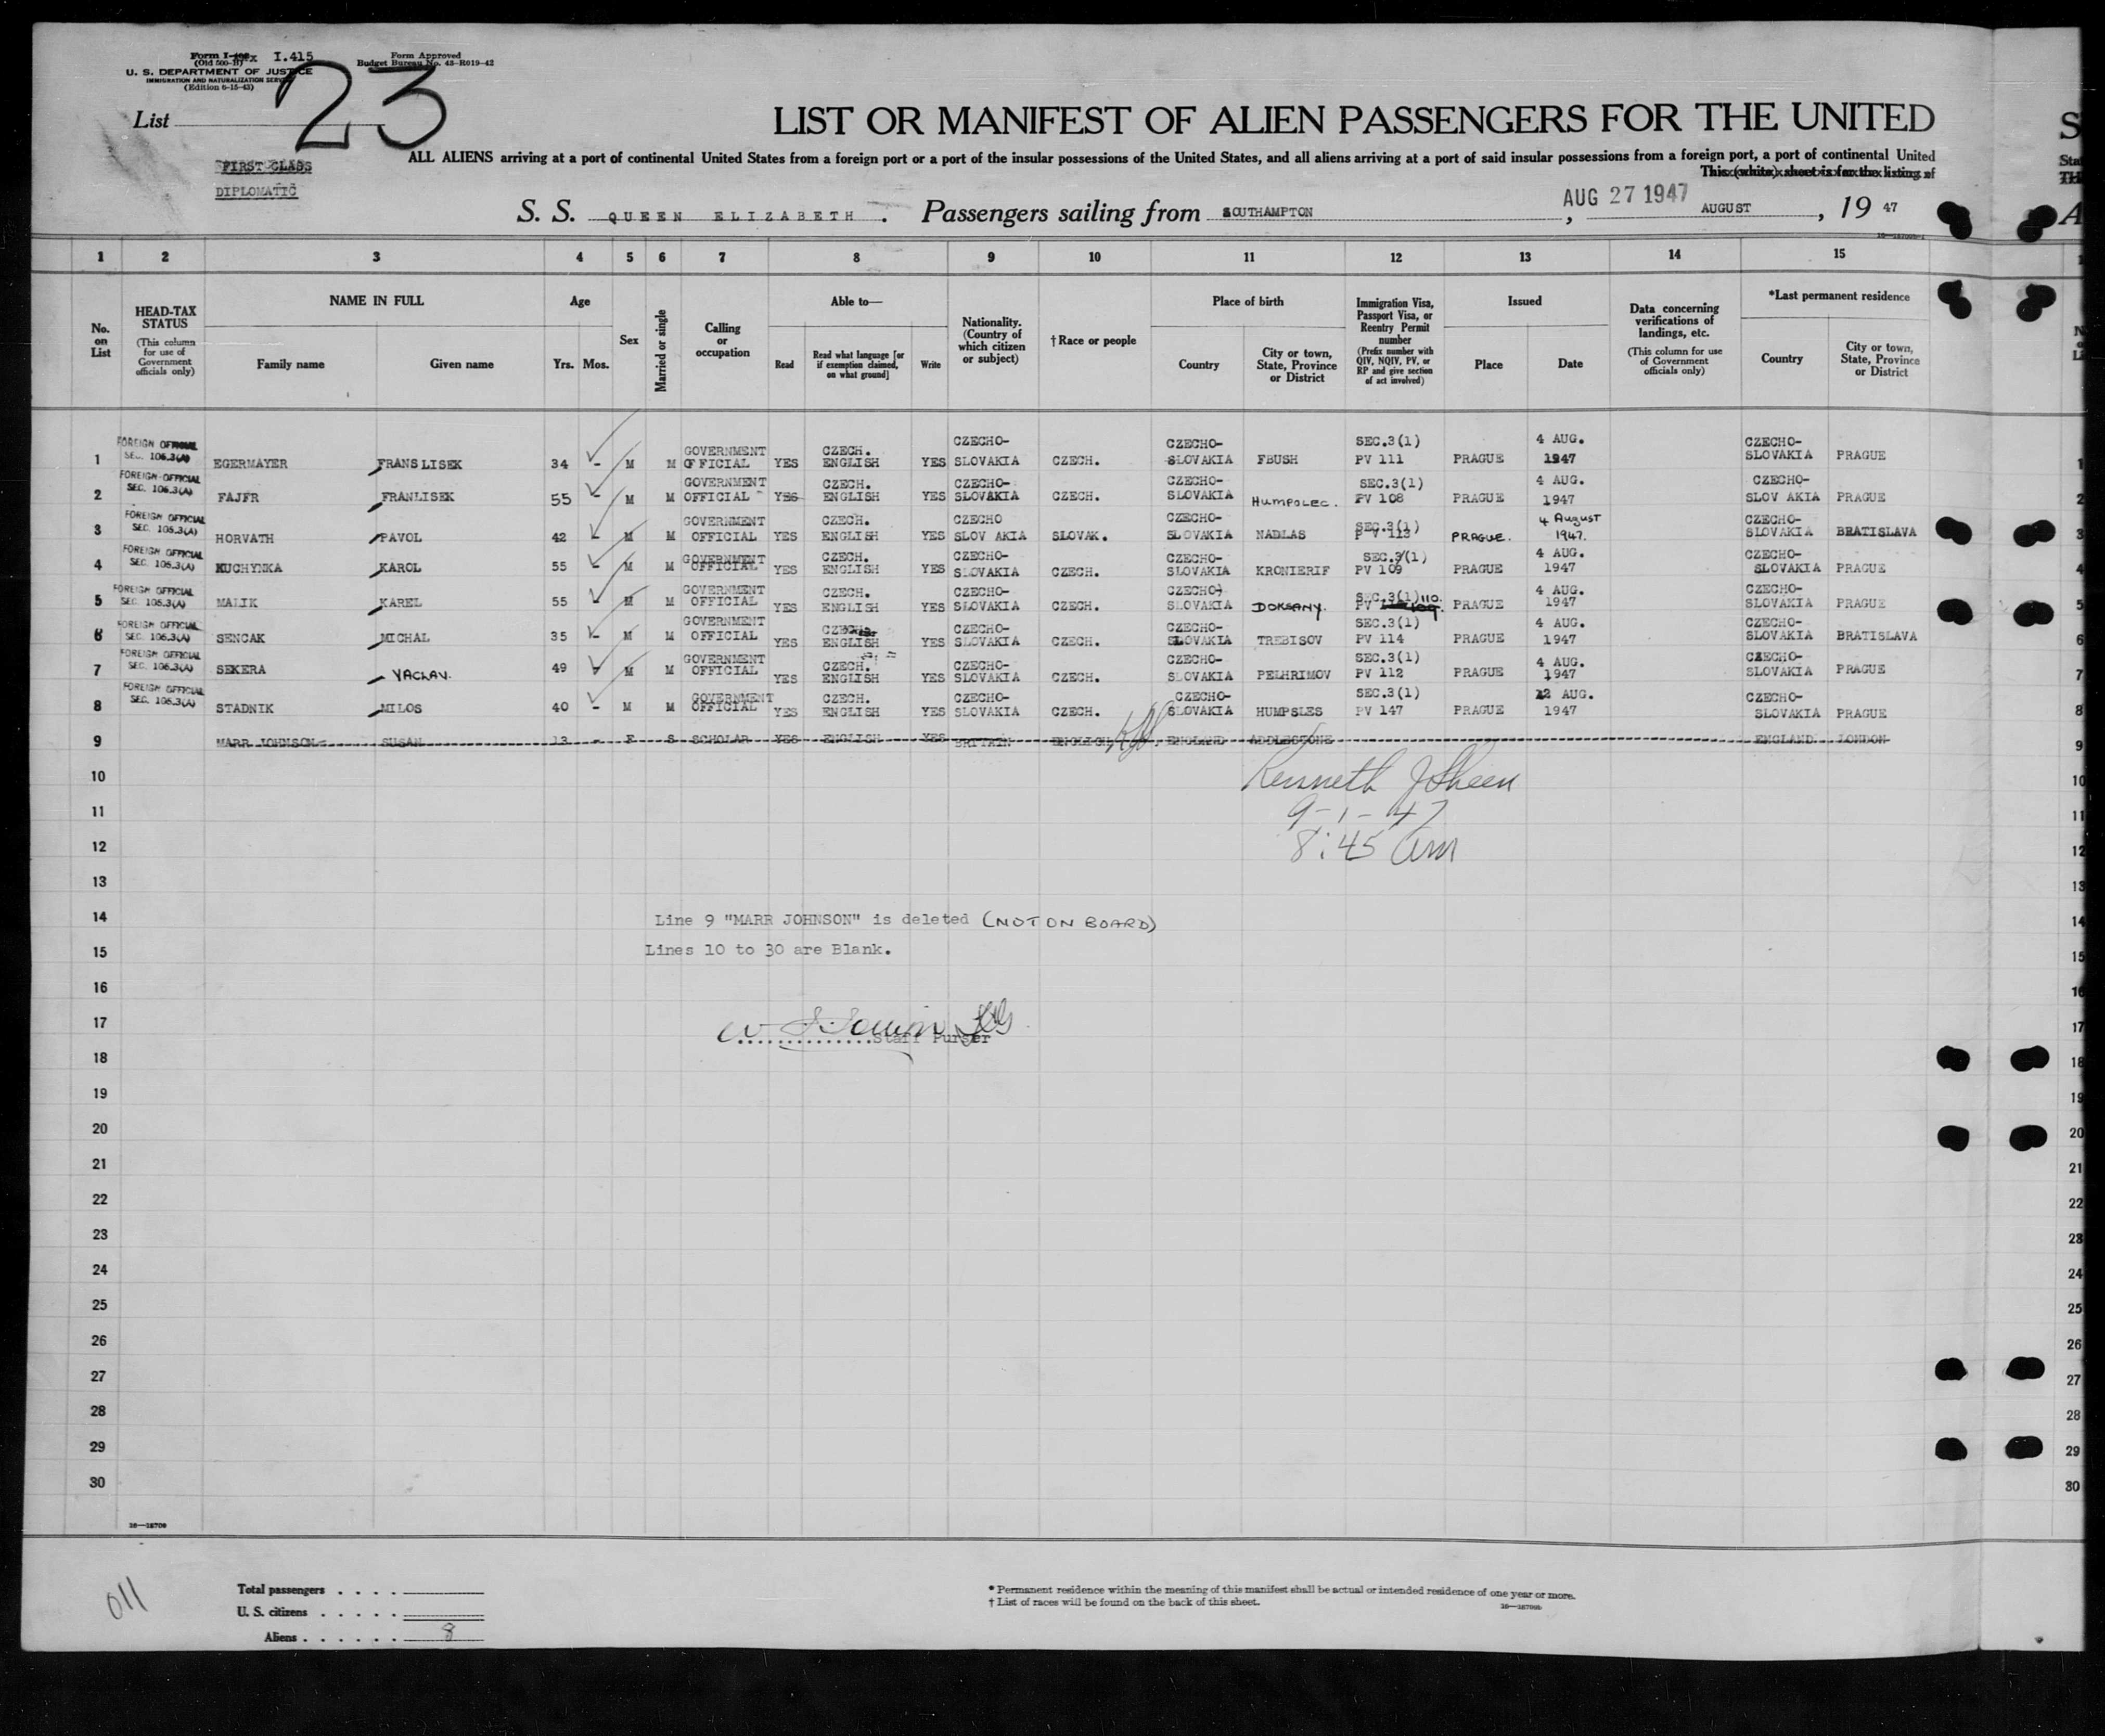 Form I-408 I.415
(Old 500-B)
U. S. DEPARTMENT OF JUSTICE
IMMIGRATION AND NATURALIZATION SERVICE
(Edition 6-15-43)
Form Approved
Budget Bureau No. 43-R019-42
List 23
LIST OR MANIFEST OF ALIEN PASSENGERS FOR THE UNITED
FIRST CLASS
DIPLOMATIC
ALL ALIENS arriving at a port of continental United States from a foreign port or a port of the insular possessions of the United States, and all aliens arriving at a port of said insular possessions from a foreign port, a port of continental United
This (white) sheet is for the listing of
S. S. QUEEN ELIZABETH . Passengers sailing from SOUTHAMPTON , AUG 27 1947 AUGUST , 19 47
1 2 3 4 5 6 7 8 9 10 11 12 13 14 15
No. on List
HEAD-TAX STATUS (This column for use of Government officials only)
NAME IN FULL Family name Given name
Age Yrs. Mos.
Sex
Married or single
Calling or occupation
Able to— Read Read what language [or if exemption claimed, on what ground] Write
Nationality. (Country of which citizen or subject)
†Race or people
Place of birth Country City or town, State, Province or District
Immigration Visa, Passport Visa, or Reentry Permit number (Prefix number with QIV, NQIV, PV, or RP and give section of act involved)
Issued Place Date
Data concerning verifications of landings, etc. (This column for use of Government officials only)
*Last permanent residence Country City or town, State, Province or District
1 FOREIGN OFFICIAL SEC. 105.3(A) EGERMAYER FRANSLISEK 34 - M M GOVERNMENT OFFICIAL YES CZECH. ENGLISH YES CZECHO-SLOVAKIA CZECH. CZECHO-SLOVAKIA FBUSH SEC.3(1) PV 111 PRAGUE 4 AUG. 1947 CZECHO-SLOVAKIA PRAGUE
2 FOREIGN OFFICIAL SEC. 105.3(A) FAJFR FRANLISEK 55 - M M GOVERNMENT OFFICIAL YES CZECH. ENGLISH YES CZECHO-SLOVAKIA CZECH. CZECHO-SLOVAKIA HUMPOLEC. SEC.3(1) PV 108 PRAGUE 4 AUG. 1947 CZECHO-SLOV AKIA PRAGUE
3 FOREIGN OFFICIAL SEC. 105.3(A) HORVATH PAVOL 42 - M M GOVERNMENT OFFICIAL YES CZECH. ENGLISH YES CZECHO SLOV AKIA SLOVAK. CZECHO-SLOVAKIA NADLAS SEC.3(1) P V 113 PRAGUE. 4 August 1947. CZECHO-SLOVAKIA BRATISLAVA
4 FOREIGN OFFICIAL SEC. 105.3(A) KUCHYNKA KAROL 55 - M M GOVERNMENT OFFICIAL YES CZECH. ENGLISH YES CZECHO-SLOVAKIA CZECH. CZECHO-SLOVAKIA KRONIERIF SEC.3(1) PV 109 PRAGUE 4 AUG. 1947 CZECHO-SLOVAKIA PRAGUE
5 FOREIGN OFFICIAL SEC. 105.3(A) MALIK KAREL 55 - M M GOVERNMENT OFFICIAL YES CZECH. ENGLISH YES CZECHO-SLOVAKIA CZECH. CZECHO-SLOVAKIA DOKSANY. SEC.3(1) 110. PV 109. PRAGUE 4 AUG. 1947 CZECHO-SLOVAKIA PRAGUE
6 FOREIGN OFFICIAL SEC. 105.3(A) SENCAK MICHAL 35 - M M GOVERNMENT OFFICIAL YES CZECH. ENGLISH YES CZECHO-SLOVAKIA CZECH. CZECHO-SLOVAKIA TREBISOV SEC.3(1) PV 114 PRAGUE 4 AUG. 1947 CZECHO-SLOVAKIA BRATISLAVA
7 FOREIGN OFFICIAL SEC. 105.3(A) SEKERA VACLAV. 49 - M M GOVERNMENT OFFICIAL YES CZECH. ENGLISH YES CZECHO-SLOVAKIA CZECH. CZECHO-SLOVAKIA PELHRIMOV SEC.3(1) PV 112 PRAGUE 4 AUG. 1947 CZECHO-SLOVAKIA PRAGUE
8 FOREIGN OFFICIAL SEC. 105.3(A) STADNIK MILOS 40 - M M GOVERNMENT OFFICIAL YES CZECH. ENGLISH YES CZECHO-SLOVAKIA CZECH. CZECHO-SLOVAKIA HUMPSLES SEC.3(1) PV 147 PRAGUE 12 AUG. 1947 CZECHO-SLOVAKIA PRAGUE
9 MARR JOHNSON SUSAN 13 - F S SCHOLAR YES ENGLISH YES BRITAIN ENGLISH ENGLAND ADDLESTONE ENGLAND LONDON
10 Kenneth J Sheen
11 9-1-47
12 8:45 am
13
14 Line 9 "MARR JOHNSON" is deleted (NOT ON BOARD)
15 Lines 10 to 30 are Blank.
16
17
Staff Purser
18
19
20
21
22
23
24
25
26
27
28
29
30
16—18709
011
Total passengers . . . .
U. S. citizens . . . . .
Aliens . . . . . . 8
* Permanent residence within the meaning of this manifest shall be actual or intended residence of one year or more.
† List of races will be found on the back of this sheet.